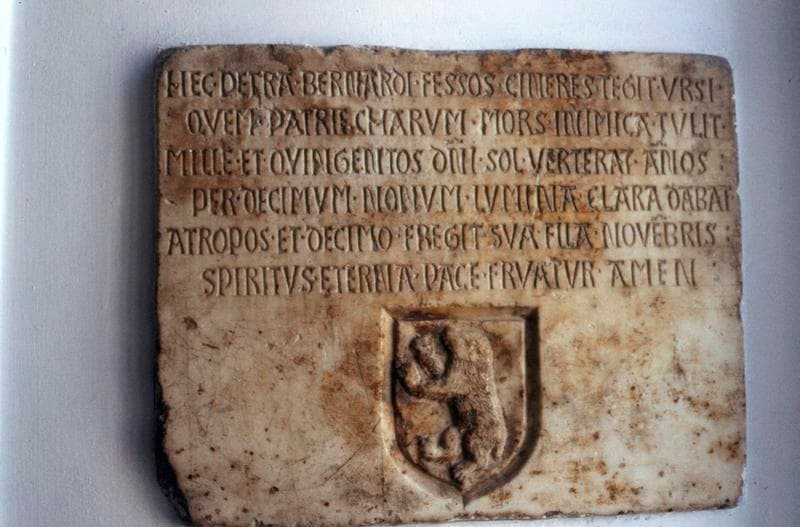 HEC·PETRA·BERNARDI·FESSOS·CINERES·TEGIT·VRSI·
QVEM·PATRIE·CHARVM·MORS·INIMICA·TVLIT·
MILLE·ET·QVINGENTOS·DÑI·SOL·VERTERAT·AÑOS:
PER·DECIMVM·NONVM·LVMINA·CLARA·DABAT
ATROPOS·ET·DECIMO·FREGIT·SVA·FILA·NOVẼBRIS:
SPIRITVS·ETERNA·PACE·FRVATVR·AMEN: